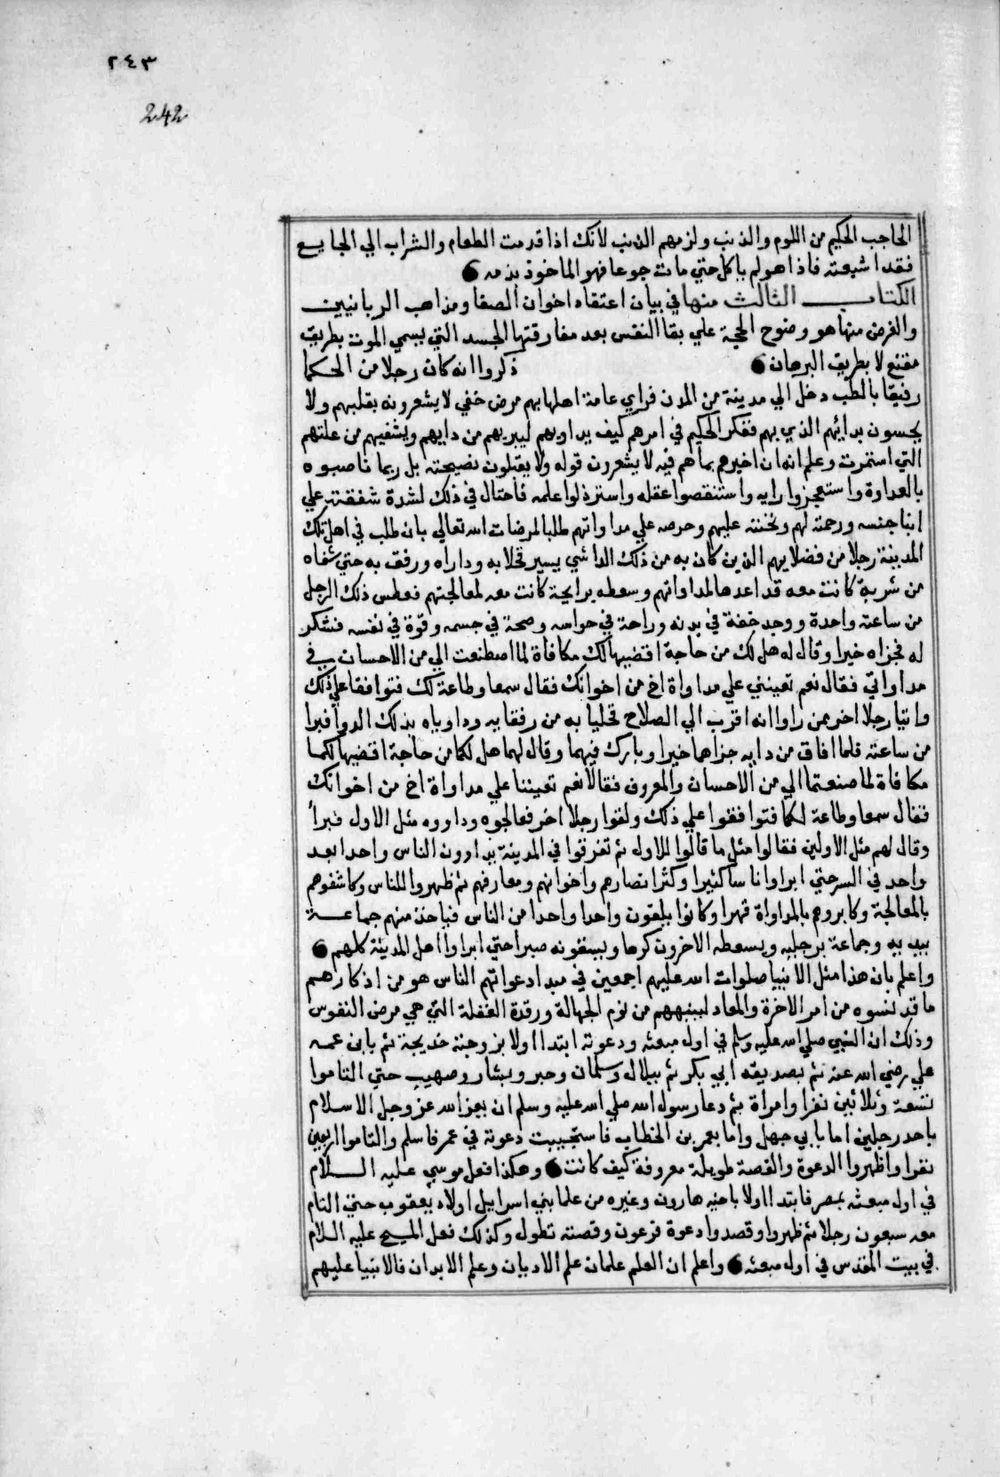 ٢٤٣
242
الحاجب الحكيم من اللوم والذنب ولزمهم الذنب لانك اذا قدمت الطعام والشراب الي الجايع
فقد اشبعته فاذا هو لم ياكل حتي مات جوعا فهو الماخوذ بذمه
الكتاب الثالث منها في بيان اعتقاد اخوان الصفا ومذاهب الربانيين
والغرض منها هو وضوح الحجة علي بقا النفس بعد مفارقتها الجسد التي يسمي الموت بطريق
مقنع لا بطريق البرهان ذكروا انه كان رجلا من الحكما
رفيقا بالطب دخل الي مدينة من المدن فراي عامة اهلها بهم مرض خفي لا يشعرون بقلبهم ولا
يحسون بدائهم الذي بهم ففكر الحكيم في امرهم كيف يداويهم ليبريهم من دايهم ويشفيهم من علتهم
التي استمرت وعلم انه ان اخبرهم بما هم فيه لا يشعرون قوله ولا يقبلون نصيحته بل ربما ناصبوه
بالعداوة واستعجزوا رايه واستنقصوا عقله واسترذلوا علمه فاحتال في ذلك لشدة شفقته علي
ابنا جنسه ورحمته لهم وتحننه عليهم وحرصه علي مداواتهم طلبا لمرضات الله تعالي بان طلب في اهل تلك
المدينة رجلا من فضلايهم الذين كان به من ذلك الدا شي يسير فخلا به وداراه ورفق به حتي شفاه
من شربة كانت معه قد اعدها لمداواتهم وسعطه برايحة كانت معه لمعالجتهم فعطس ذلك الرجل
من ساعته واحدة ووجد خفة في بدنه وراحة في حواسه وصحة في جسمه وقوة في نفسه فشكر
له فجزاه خيرا وقال له هل لك من حاجة اقضيها لك مكافاة لما اصطنعت الي من الاحسان في
مداواتي فقال نعم تعينني علي مداواة اخ من اخوانك فقال سمعا وطاعة لك فتوافقا علي ذلك
واتيا رجلا اخر ممن راوا انه اقرب الي الصلاح فخليا به من رفقايه وداوياه بذلك الدوا فبرا
من ساعته فلما افاق من دايه جزاهما خيرا وبارك فيهما وقال لهما هل لكما من حاجة اقضيها لكما
مكافاة لما صنعتما الي من الاحسان والمعروف فقالا نعم تعيننا علي مداواة اخ من اخوانك
فقال سمعا وطاعة لكما فتوافقوا علي ذلك ولقوا رجلا اخر فعالجوه وداووه مثل الاول فبرا
وقال لهم مثل الاولين فقالوا مثل ما قالوا للاول ثم تفرقوا في المدينة يداوون الناس واحدا بعد
واحد في السر حتي ابراوا ناسا كثيرا وكثر انصارهم واخوانهم ومعارفهم ثم ظهروا للناس وكاشفوهم
بالمعالجة وكابروهم بالمداواة قهرا وكانوا يلقون واحدا واحدا من الناس فياخذ منهم جماعة
بيديه وجماعة برجليه ويسعطه الاخرون كرها ويسقونه صبرا حتي ابراوا اهل المدينة كلهم
واعلم بان هذا مثل الانبيا صلوات الله عليهم اجمعين في مبدا دعواتهم الناس هو من اذكارهم
ما قد نسوه من امر الاخرة والمعاد لينبههم من نوم الجهالة ورقدة الغفلة التي هي مرض النفوس
وذلك ان النبي صلي الله عليه وسلم في اول مبعثه ودعوته ابتدا اولا بزوجته خديجة ثم بابن عمه
علي رضي الله عنه ثم بصديقه ابي بكر ثم ببلال وسلمان وجبر وبشار وصهيب حتي التاموا
تسعة وثلاثين نفرا وامراة ثم دعا رسول الله صلي الله عليه وسلم ان يعز الله عز وجل الاسلام
باحد رجلين اما بابي جهل واما بعمر بن الخطاب فاستجيبت دعوته في عمر فاسلم والتاموا اربعين
نفرا واظهروا الدعوة والقصة طويلة معروفة كيف كانت وهكذا فعل موسي عليه السلام
في اول مبعثه بمصر فابتدا اولا باخيه هارون وغيره من علما بني اسراييل اولاد يعقوب حتي التام
معه سبعون رجلا ثم ظهروا وقصدوا دعوة فرعون وقصته تطول وكذلك فعل المسيح عليه السلام
في بيت المقدس في اول مبعثه واعلم ان العلم علمان علم الاديان وعلم الابدان فالانبيا عليهم